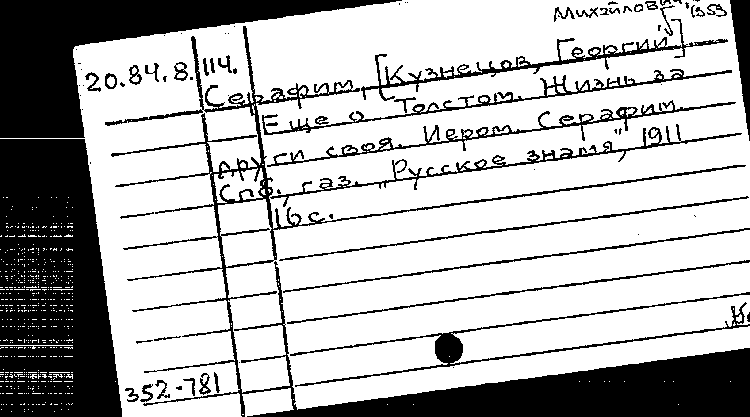 Михайлович, 1959
20.84.8.114.
Серафим, [Кузнецов, Георгий]
Еще о Толстом. Жизнь за
други своя. Иером. Серафим.
Спб., газ. „Русское знамя", 1911
16 с.
352-781